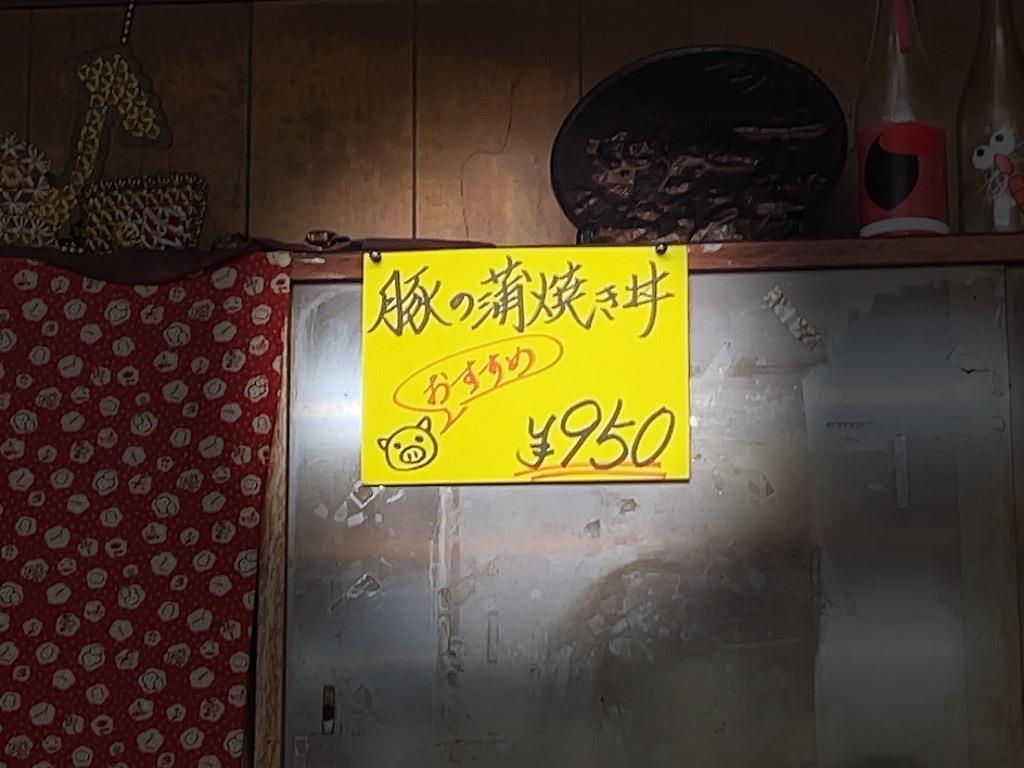 豚の蒲焼き丼
おすすめ
¥950